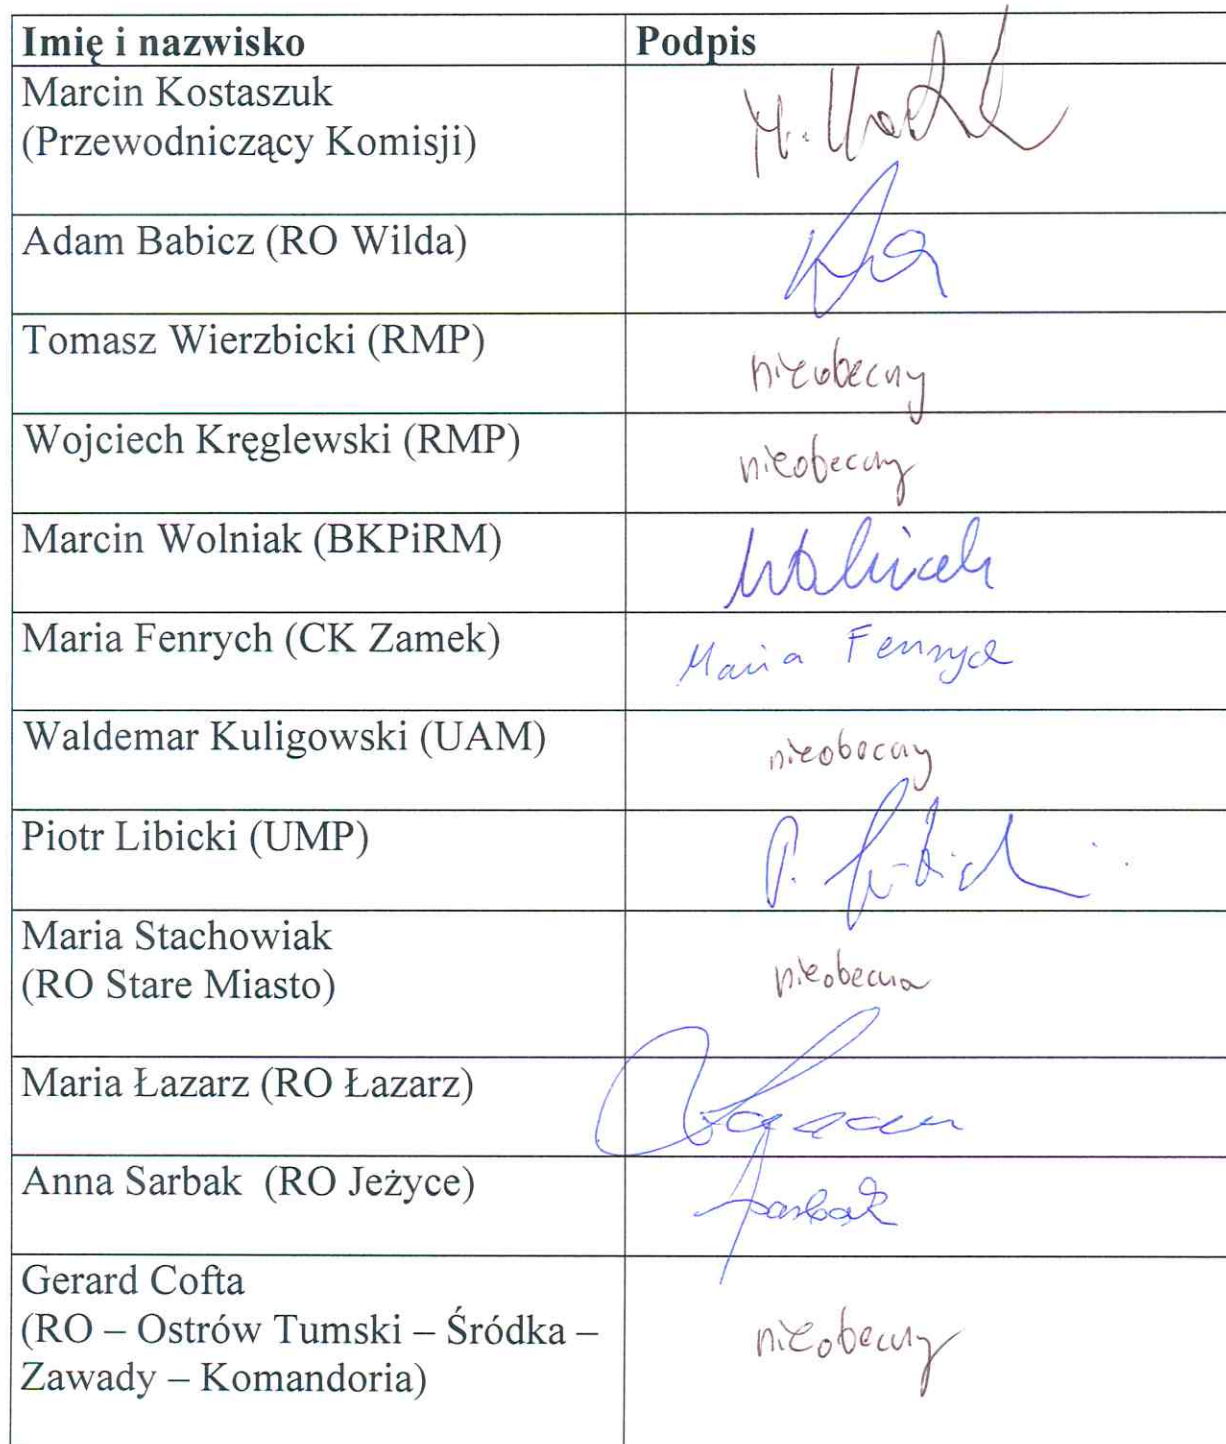 Imię i nazwisko Podpis
Marcin Kostaszuk
(Przewodniczący Komisji)
Adam Babicz (RO Wilda)
Tomasz Wierzbicki (RMP) nieobecny
Wojciech Kręglewski (RMP) nieobecny
Marcin Wolniak (BKPiRM) Wolniak
Maria Fenrych (CK Zamek) Maria Fenrych
Waldemar Kuligowski (UAM) nieobecny
Piotr Libicki (UMP) P. Libicki
Maria Stachowiak
(RO Stare Miasto) nieobecna
Maria Łazarz (RO Łazarz)
Anna Sarbak (RO Jeżyce) Sarbak
Gerard Cofta
(RO – Ostrów Tumski – Śródka – nieobecny
Zawady – Komandoria)